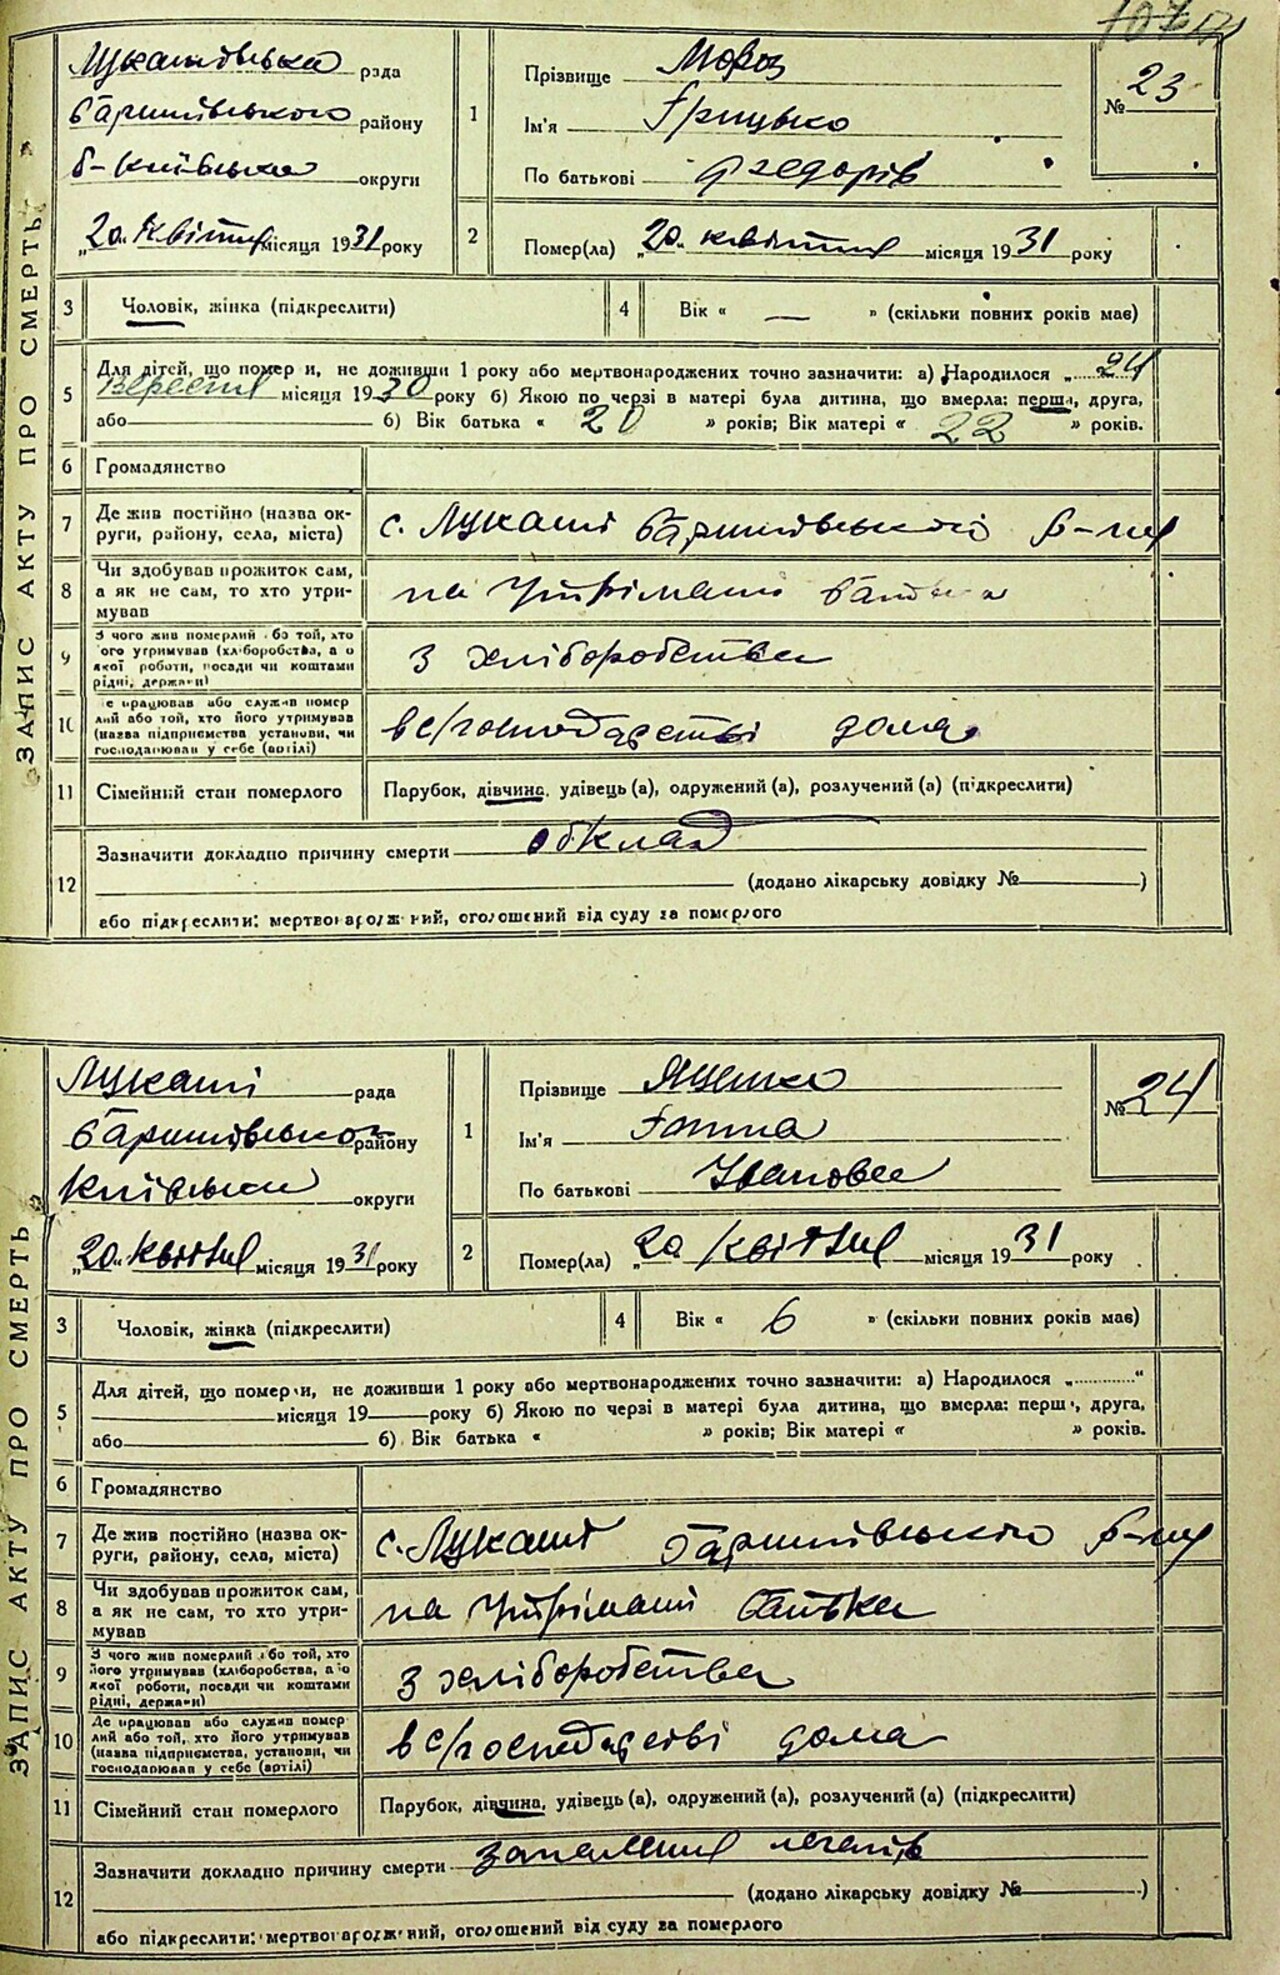 ЗАПИС АКТУ ПРО СМЕРТЬ
Лукашівська рада
Баришівського району
б-Київська округи
„20“ квітня місяця 1931 року
1
Прізвище Мороз
Ім'я Грицько
По батькові Федорів
№ 23
2
Помер(ла) „20“ квітня місяця 1931 року
3 Чоловік, жінка (підкреслити)
4 Вік « — » (скільки повних років має)
5 Для дітей, що померли, не доживши 1 року або мертвонароджених точно зазначити: а) Народилося „24
Вересня місяця 1930 року б) Якою по черзі в матері була дитина, що вмерла: перша, друга,
або б) Вік батька « 20 » років; Вік матері « 22 » років.
6 Громадянство
7 Де жив постійно (назва округи, району, села, міста) с. Лукаші Баришівського р-ну
8 Чи здобував прожиток сам, а як не сам, то хто утримував на утріманні батька
9 З чого жив померлий або той, хто його утримував (хліборобства, або якої роботи, посади чи коштами рідні, держави) З хліборобства
10 Де працював або служив померлий або той, хто його утримував (назва підприємства установи, чи господарював у себе (артілі) в с/господарстві дома
11 Сімейний стан померлого Парубок, дівчина, удівець (а), одружений (а), розлучений (а) (підкреслити)
12 Зазначити докладно причину смерти обклад
(додано лікарську довідку № )
або підкреслити: мертвонароджений, оголошений від суду за померлого
ЗАПИС АКТУ ПРО СМЕРТЬ
Лукаші рада
Баришівського району
Київська округи
„20“ квітня місяця 1931 року
1
Прізвище Яценко
Ім'я Ганна
По батькові Івановна
№ 24
2
Помер(ла) „20 квітня місяця 1931 року
3 Чоловік, жінка (підкреслити)
4 Вік « 6 » (скільки повних років має)
5 Для дітей, що померли, не доживши 1 року або мертвонароджених точно зазначити: а) Народилося „ “
місяця 19 року б) Якою по черзі в матері була дитина, що вмерла: перша, друга,
або б) Вік батька « » років; Вік матері « » років.
6 Громадянство
7 Де жив постійно (назва округи, району, села, міста) с. Лукаші Баришівського р-ну
8 Чи здобував прожиток сам, а як не сам, то хто утримував на утріманні батька
9 З чого жив померлий або той, хто його утримував (хліборобства, або якої роботи, посади чи коштами рідні, держави) З хліборобства
10 Де працював або служив померлий або той, хто його утримував (назва підприємства, установи, чи господарював у себе (артілі) в с/господарстві дома
11 Сімейний стан померлого Парубок, дівчина, удівець (а), одружений (а), розлучений (а) (підкреслити)
12 Зазначити докладно причину смерти запалення легенів
(додано лікарську довідку № )
або підкреслити: мертвонароджений, оголошений від суду за померлого